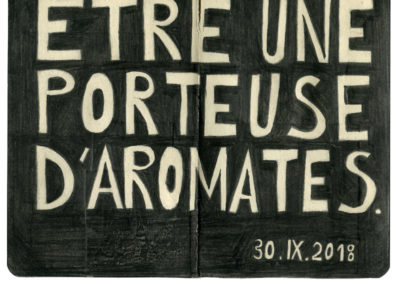 ETRE UNE
PORTEUSE
D'AROMATES.
30.IX.2018